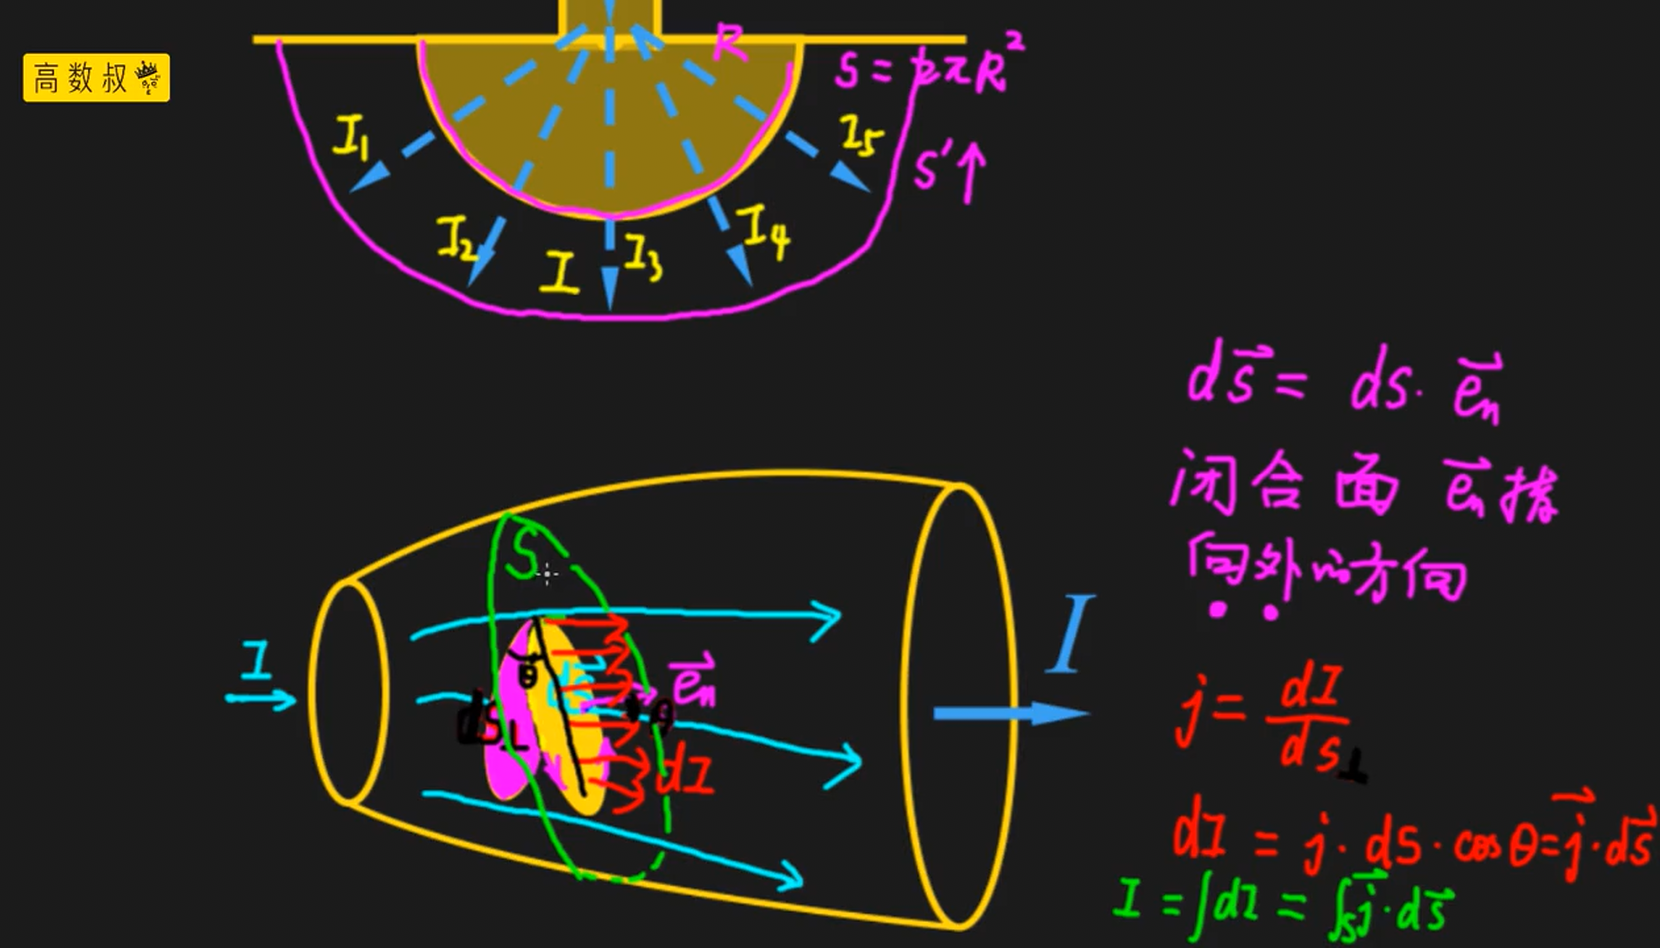 高数叔
R
S = 2πR²
I₁
I₅
S'↑
I₂
I
I₃
I₄
dS⃗ = dS · e⃗ₙ
闭合面 e⃗ₙ 指
向外的方向
S
I
θ
dS⃗
e⃗ₙ
I
dS⊥
θ
dI
j = dI/dS⊥
dI = j · dS · cosθ = j⃗ · dS⃗
I = ∫dI = ∫ₛ j⃗ · dS⃗